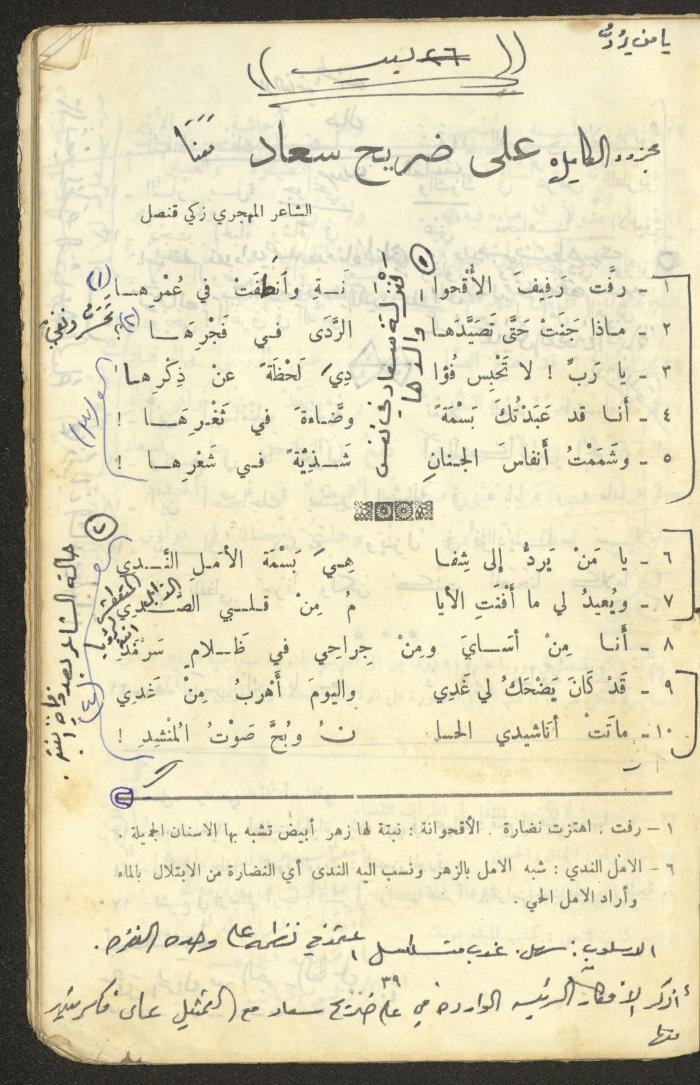 يا من يردّ
((٢٦ لبيب))
مجزوء الكامل على ضريح سعاد
الشاعر المهجري زكي قنصل
١ - رفَّت رَفِيفَ الأُقْحوا نَةِ وَانْطَفَتْ في عُمْرِهـا
٢ - ماذا جَنَتْ حَتَّى تَصَيَّدَهـا الرَّدَى فـي فَجْرِهَـا ؟
٣ - يا رَبِّ ! لا تَحْبِس فُؤا دِيَ لَحْظَةً عَنْ ذِكْرِهـا
٤ - أَنـا قد عَبَدْتُكَ بَسْمَةً وَضَّاءَةً في ثَغْـرِهَـا !
٥ - وشَمَمْتُ أَنفاسَ الجِنانِ شَـذِيَّةً فـي شَعْرِهـا !
منزلة سعاد في نفس والدها
تحسر وتفجع
٦ - يا مَنْ يَردُّ إلى شِفا هِيَ بَسْمَةَ الأمَـلِ النَّـدِي
٧ - ويُعِيدُ لي ما أَفْنَتِ الأيا مُ مِنْ قـلـبي الصَّـدِي
٨ - أَنـا مِنْ أسَـايَ ومِنْ جِراحِي في ظَـلامٍ سَرْمَدِي
٩ - قَدْ كانَ يَضْحَكُ لي غَدِي واليومَ أَهْرُبُ مِنْ غَدِي
١٠ - ماتَتْ أناشيدي الحسا نُ وبُحَّ صَوْتُ المُنْشِدِ !
حالة الشاعر بعد وفاة ابنته
١ - رفت : اهتزت نضارة . الأقحوانة : نبتة لها زهر أبيض تشبه بها الاسنان الجميلة .
٦ - الامل الندي : شبه الامل بالزهر ونسب اليه الندى أي النضارة من الابتلال بالماء
وأراد الامل الحي .
الاسلوب : سهل عذب متسلسل اعتمد في نظمه على وحدة الفقرة .
٣٩
أذكر الأفكار الرئيسة الواردة في على ضريح سعاد مع التمثيل على فكرتين
منها